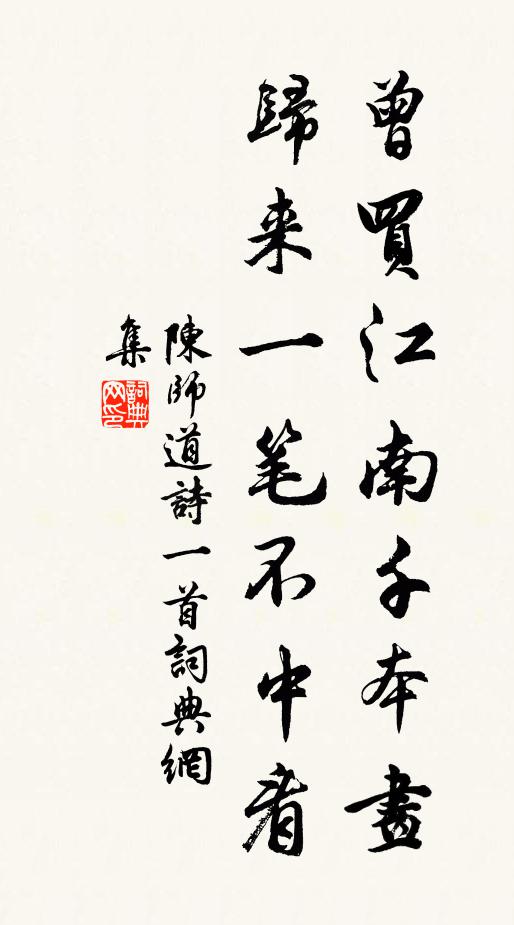 曾買江南千本畫
歸来一笔不中看
陳師道詩一首詞典網
集
詞典
网印